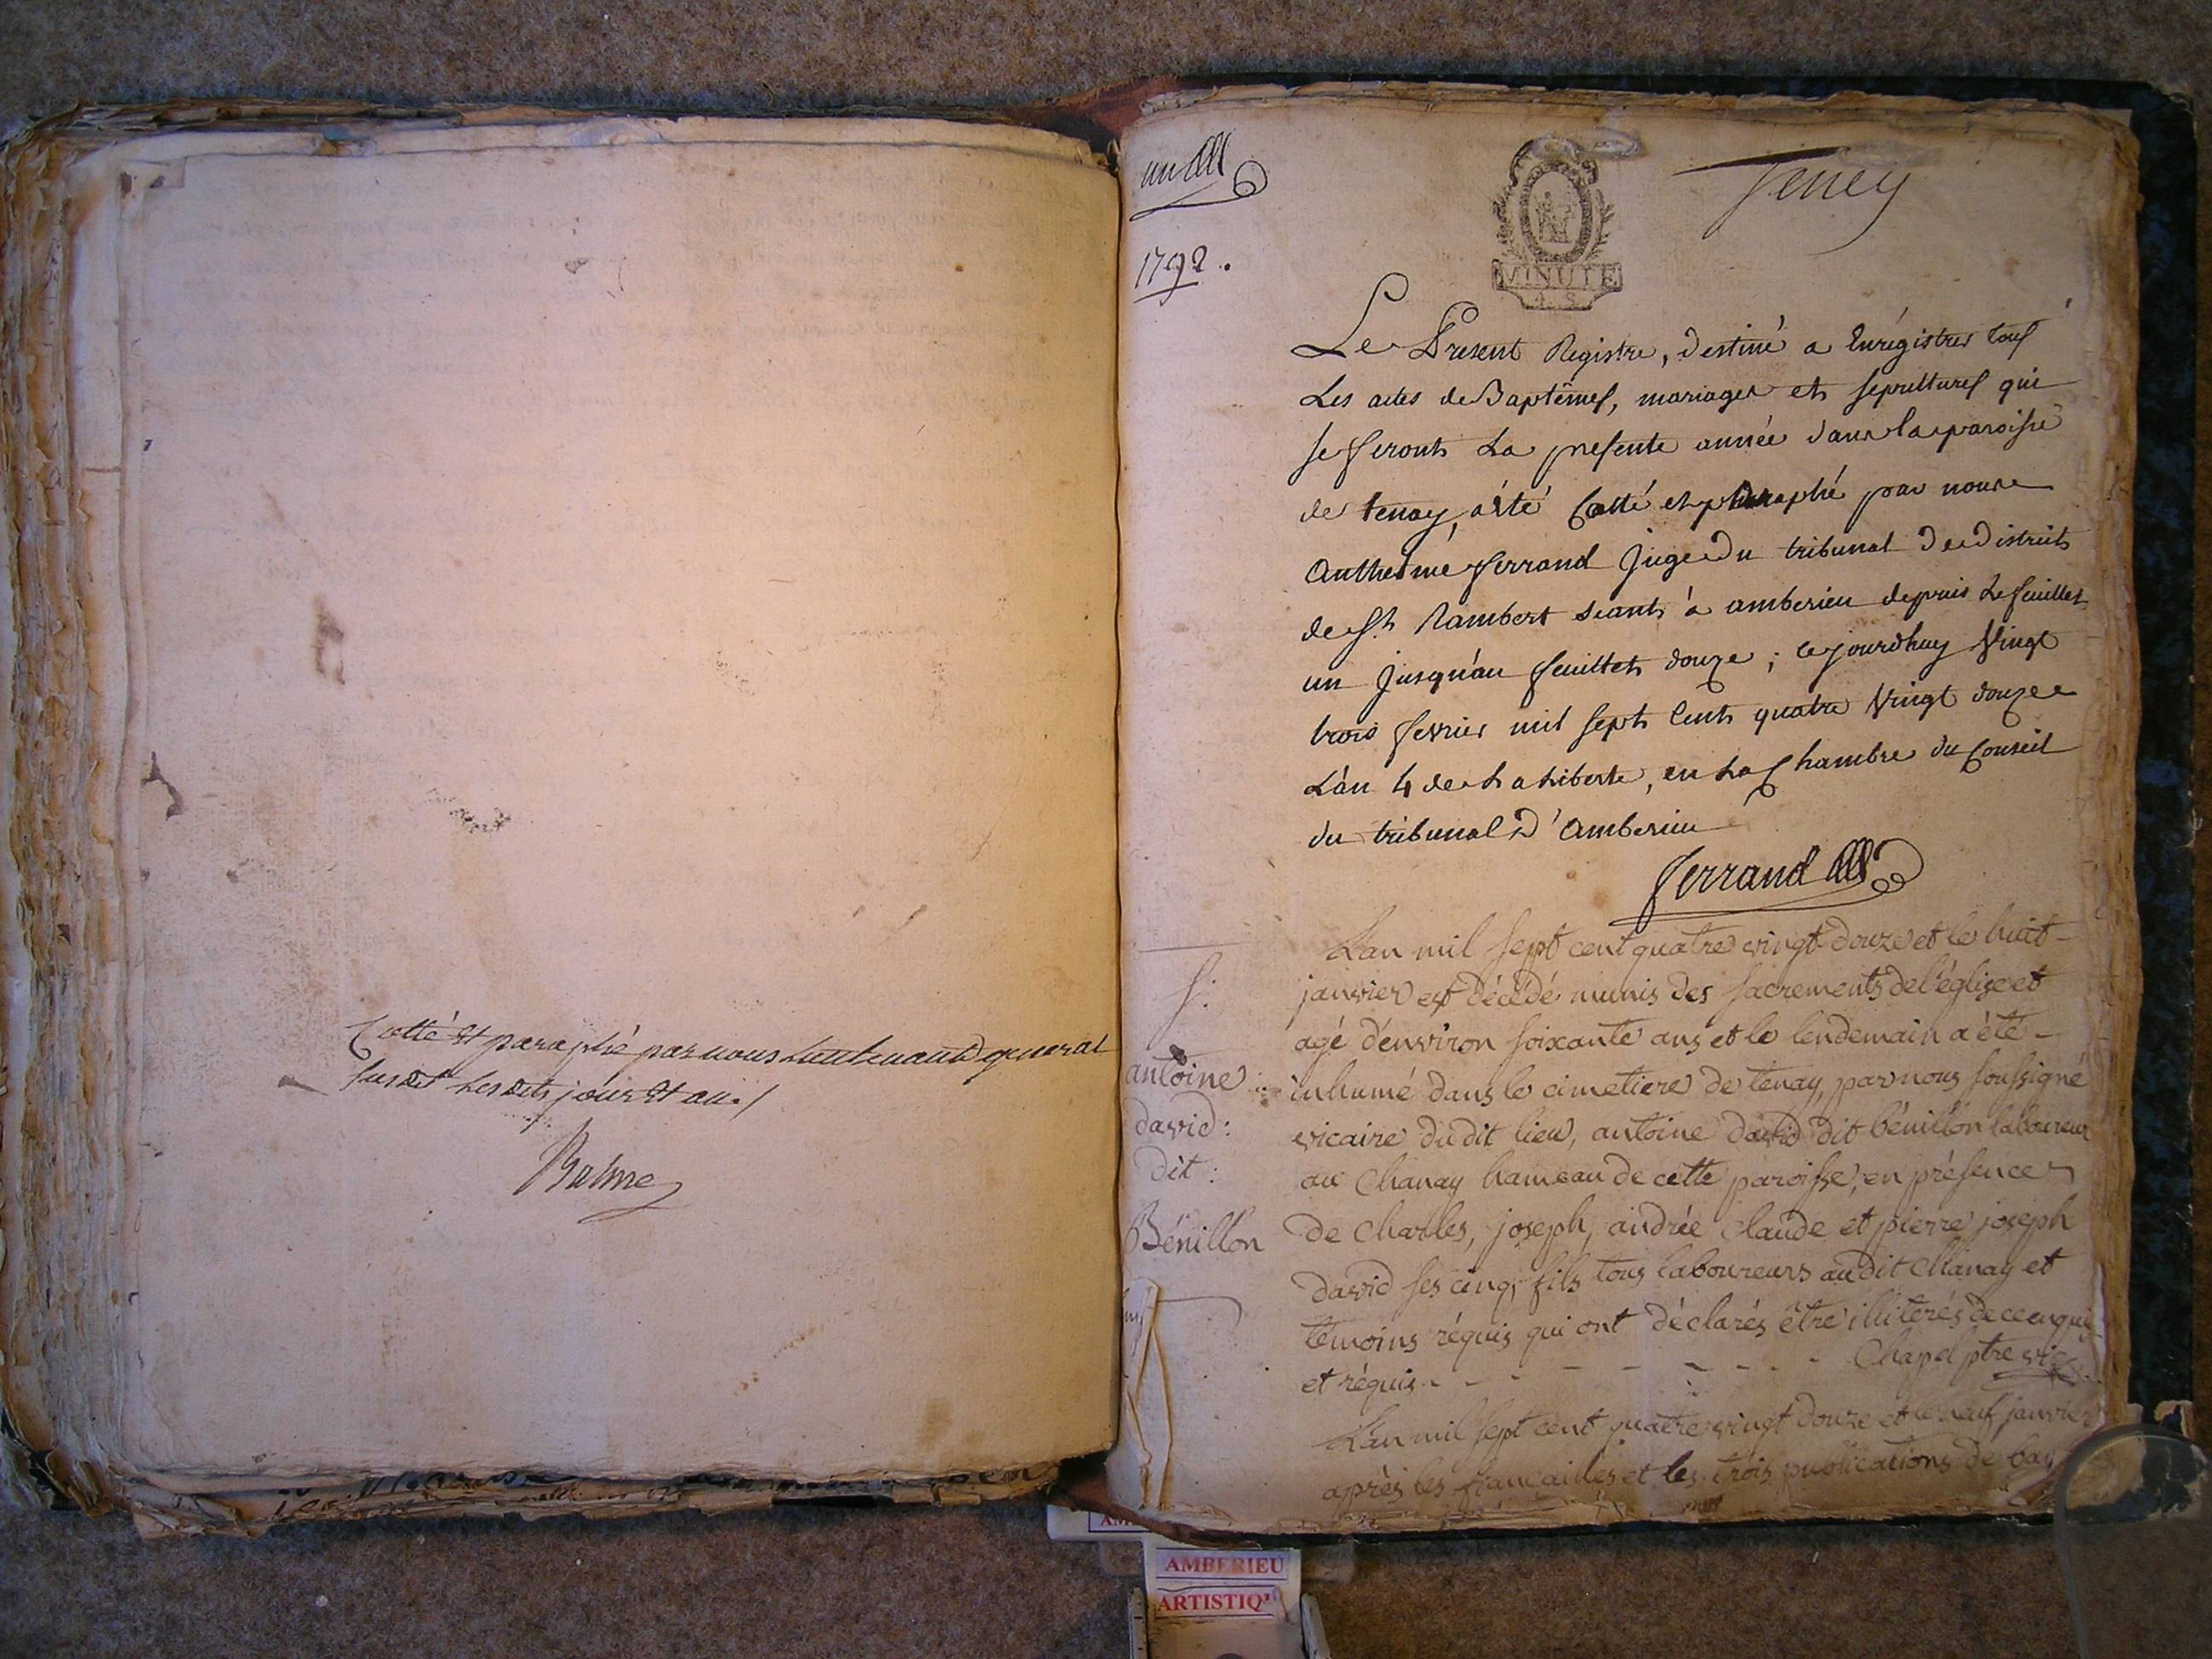 Cotté Et paraphé par nous Lieutenant general
susdit Les dits jour Et an./
Balme
un
1792.
MINUTE
4. S.
Teney
Le Présent Registre, destiné a Enrégistrer tous
Les actes de Baptêmes, mariages et sepultures qui
se feront La presente année dans la paroisse
de tenay, a été Cotté et paraphé par nous
Anthelme ferrand Juge du tribunal de district
de St Rambert séant à amberieu depuis Le feuillet
un Jusqu'au feuillet douze ; cejourdhuy Vingt
trois fevrier mil sept Cent quatre Vingt douze
L'an 4 de La Liberte, en La Chambre du Conseil
du tribunal D'Amberieu
ferrand
L'an mil sept cent quatre vingt douze et le huit
janvier est décédé munis des sacrements de l'église et
agé d'environ soixante ans et le lendemain a été
inhumé dans le cimetiere de tenay, par nous soussigné
vicaire du dit lieu, antoine david dit bénillon laboureur
au Chanay hameau de cette paroisse, en présence
de Charles, joseph, andrée Claude et pierre joseph
david ses cinq fils tous laboureurs audit Chanay et
témoins réquis qui ont déclarés être illiterés de ce enquis
et réquis - - - - - - - - Chapel ptre vic
S:
antoine
david:
dit:
Bénillon
L'an mil sept cent quatre vingt douze et le neuf janvier
après les fiançailles et les trois publications de
AMBERIEU
ARTISTIQ'